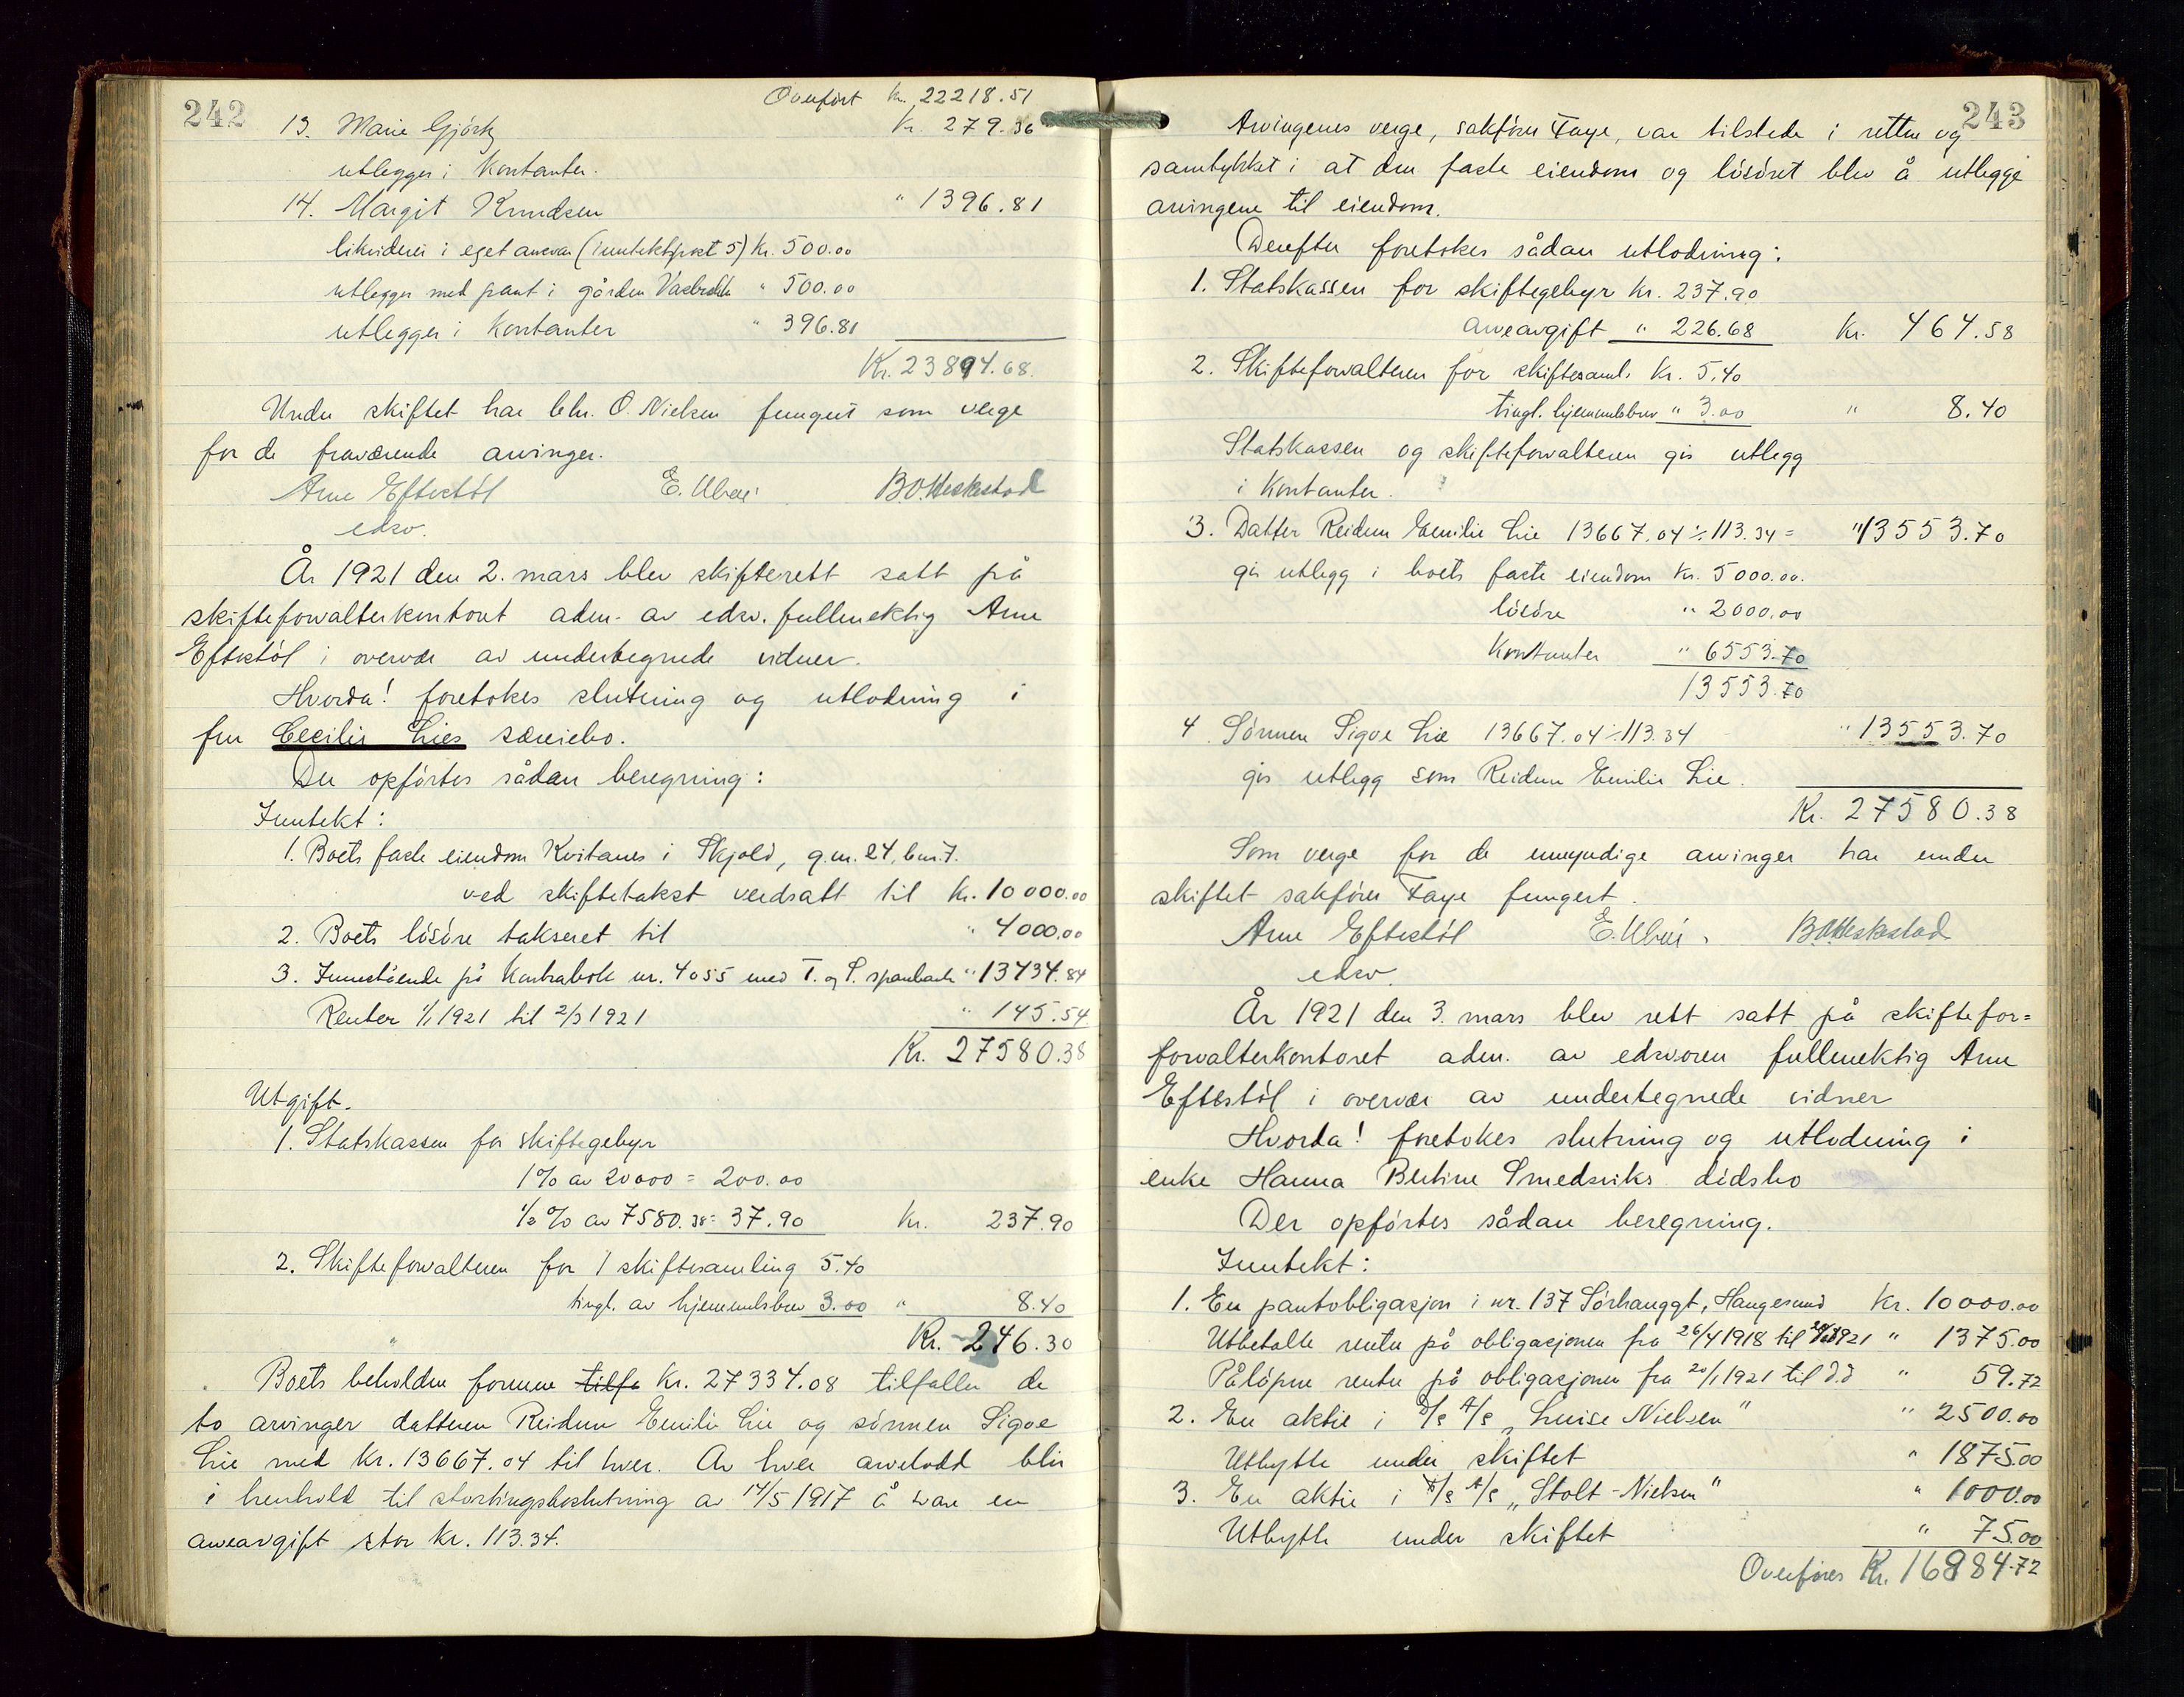 242
Overført Kr. 22218.51
13. Marie Gjörtz Kr. 279.36
utlegges i Kontanter.
14. Margit Knudsen " 1396.81
likvideres i eget ansvar (inntektspost 5) Kr. 500.00
utlegges med pant i gården " 500.00
utlegges i Kontanter " 396.81
Kr. 23894.68.
Under skiftet har O. Nielsen fungert som verge
for de fraværende arvinger.
Arne Eftestöl E. Ubøe B.O. Heskestad
edsv.
År 1921 den 2. mars blev skifterett satt på
skifteforvalterkontoret adm. av edsv. fullmektig Arne
Eftestöl i overvær av undertegnede vidner.
Hvorda! foretokes slutning og utlodning i
fru Cecilie Lies særeiebo.
Der opförtes sådan beregning:
Inntekt:
1. Boets faste eiendom Kvitanes i Skjold, g.nr. 24, b.nr. 7.
ved skiftetakst verdsatt til Kr. 10000.00
2. Boets lösöre takseret til " 4000.00
3. Innestående på Kontrabok nr. 4055 med T. og S. sparebank " 13434.84
Renter 1/1 1921 til 2/3 1921 " 145.54
Kr. 27580.38
Utgift.
1. Statskassen for skiftegebyr
1% av 20000 = 200.00
1/2 % av 7580.38 = 37.90 Kr. 237.90
2. Skifteforvalteren for 1 skiftesamling 5.40
tingl. av hjemmelsbrev 3.00 " 8.40
Kr. 246.30
Boets beholdne formue tilfa Kr. 27334.08 tilfaller de
to arvinger datteren Reidun Emilie Lie og sönnen Sigve
Lie med Kr. 13667.04 til hver. Av hver arvelodd blir
i henhold til stortingsbeslutning av 14/5 1917 å svare en
arveavgift stor Kr. 113.34.
243
Arvingenes verge, sakförer Faye, var tilstede i retten og
samtykket i at den faste eiendom og lösöret blev å utlegge
arvingene til eiendom.
Derefter foretokes sådan utlodning:
1. Statskassen for skiftegebyr Kr. 237.90
arveavgift " 226.68 Kr. 464.58
2. Skifteforvalteren for skiftesaml. Kr. 5.40
tingl. hjemmelsbrev " 3.00 " 8.40
Statskassen og skifteforvalteren gis utlegg
i Kontanter.
3. Datter Reidun Emilie Lie 13667.04 ÷ 113.34 = " 13553.70
gis utlegg i boets faste eiendom Kr. 5000.00.
lösöre " 2000.00
Kontanter " 6553.70
13553.70
4. Sönnen Sigve Lie 13667.04 ÷ 113.34 " 13553.70
gis utlegg som Reidun Emilie Lie.
Kr. 27580.38
Som verge for de umyndige arvinger har under
skiftet sakförer Faye fungert.
Arne Eftestöl E. Ubøe. B.O. Heskestad
edsv.
År 1921 den 3. mars blev rett satt på skiftefor=
forvalterkontoret adm. av edsvoren fullmektig Arne
Eftestöl i overvær av undertegnede vidner
Hvorda! foretokes slutning og utlodning i
enke Hanna Bertine Smedsviks dödsbo
Der opförtes sådan beregning.
Inntekt:
1. En pantobligasjon i nr. 137 Sörhauggt, Haugesund Kr. 10000.00
Utbetalte renter på obligasjonen fra 26/4 1918 til 1921 " 1375.00
Pålöpne renter på obligasjonen fra 20/1 1921 til d.d " 59.72
2. En aktie i D/S A/S „Luise Nielsen" " 2500.00
Utbytte under skiftet " 1875.00
3. En aktie i A/S „Stolt-Nielsen" " 1000.00
Utbytte under skiftet " 75.00
Overføres Kr. 16884.72